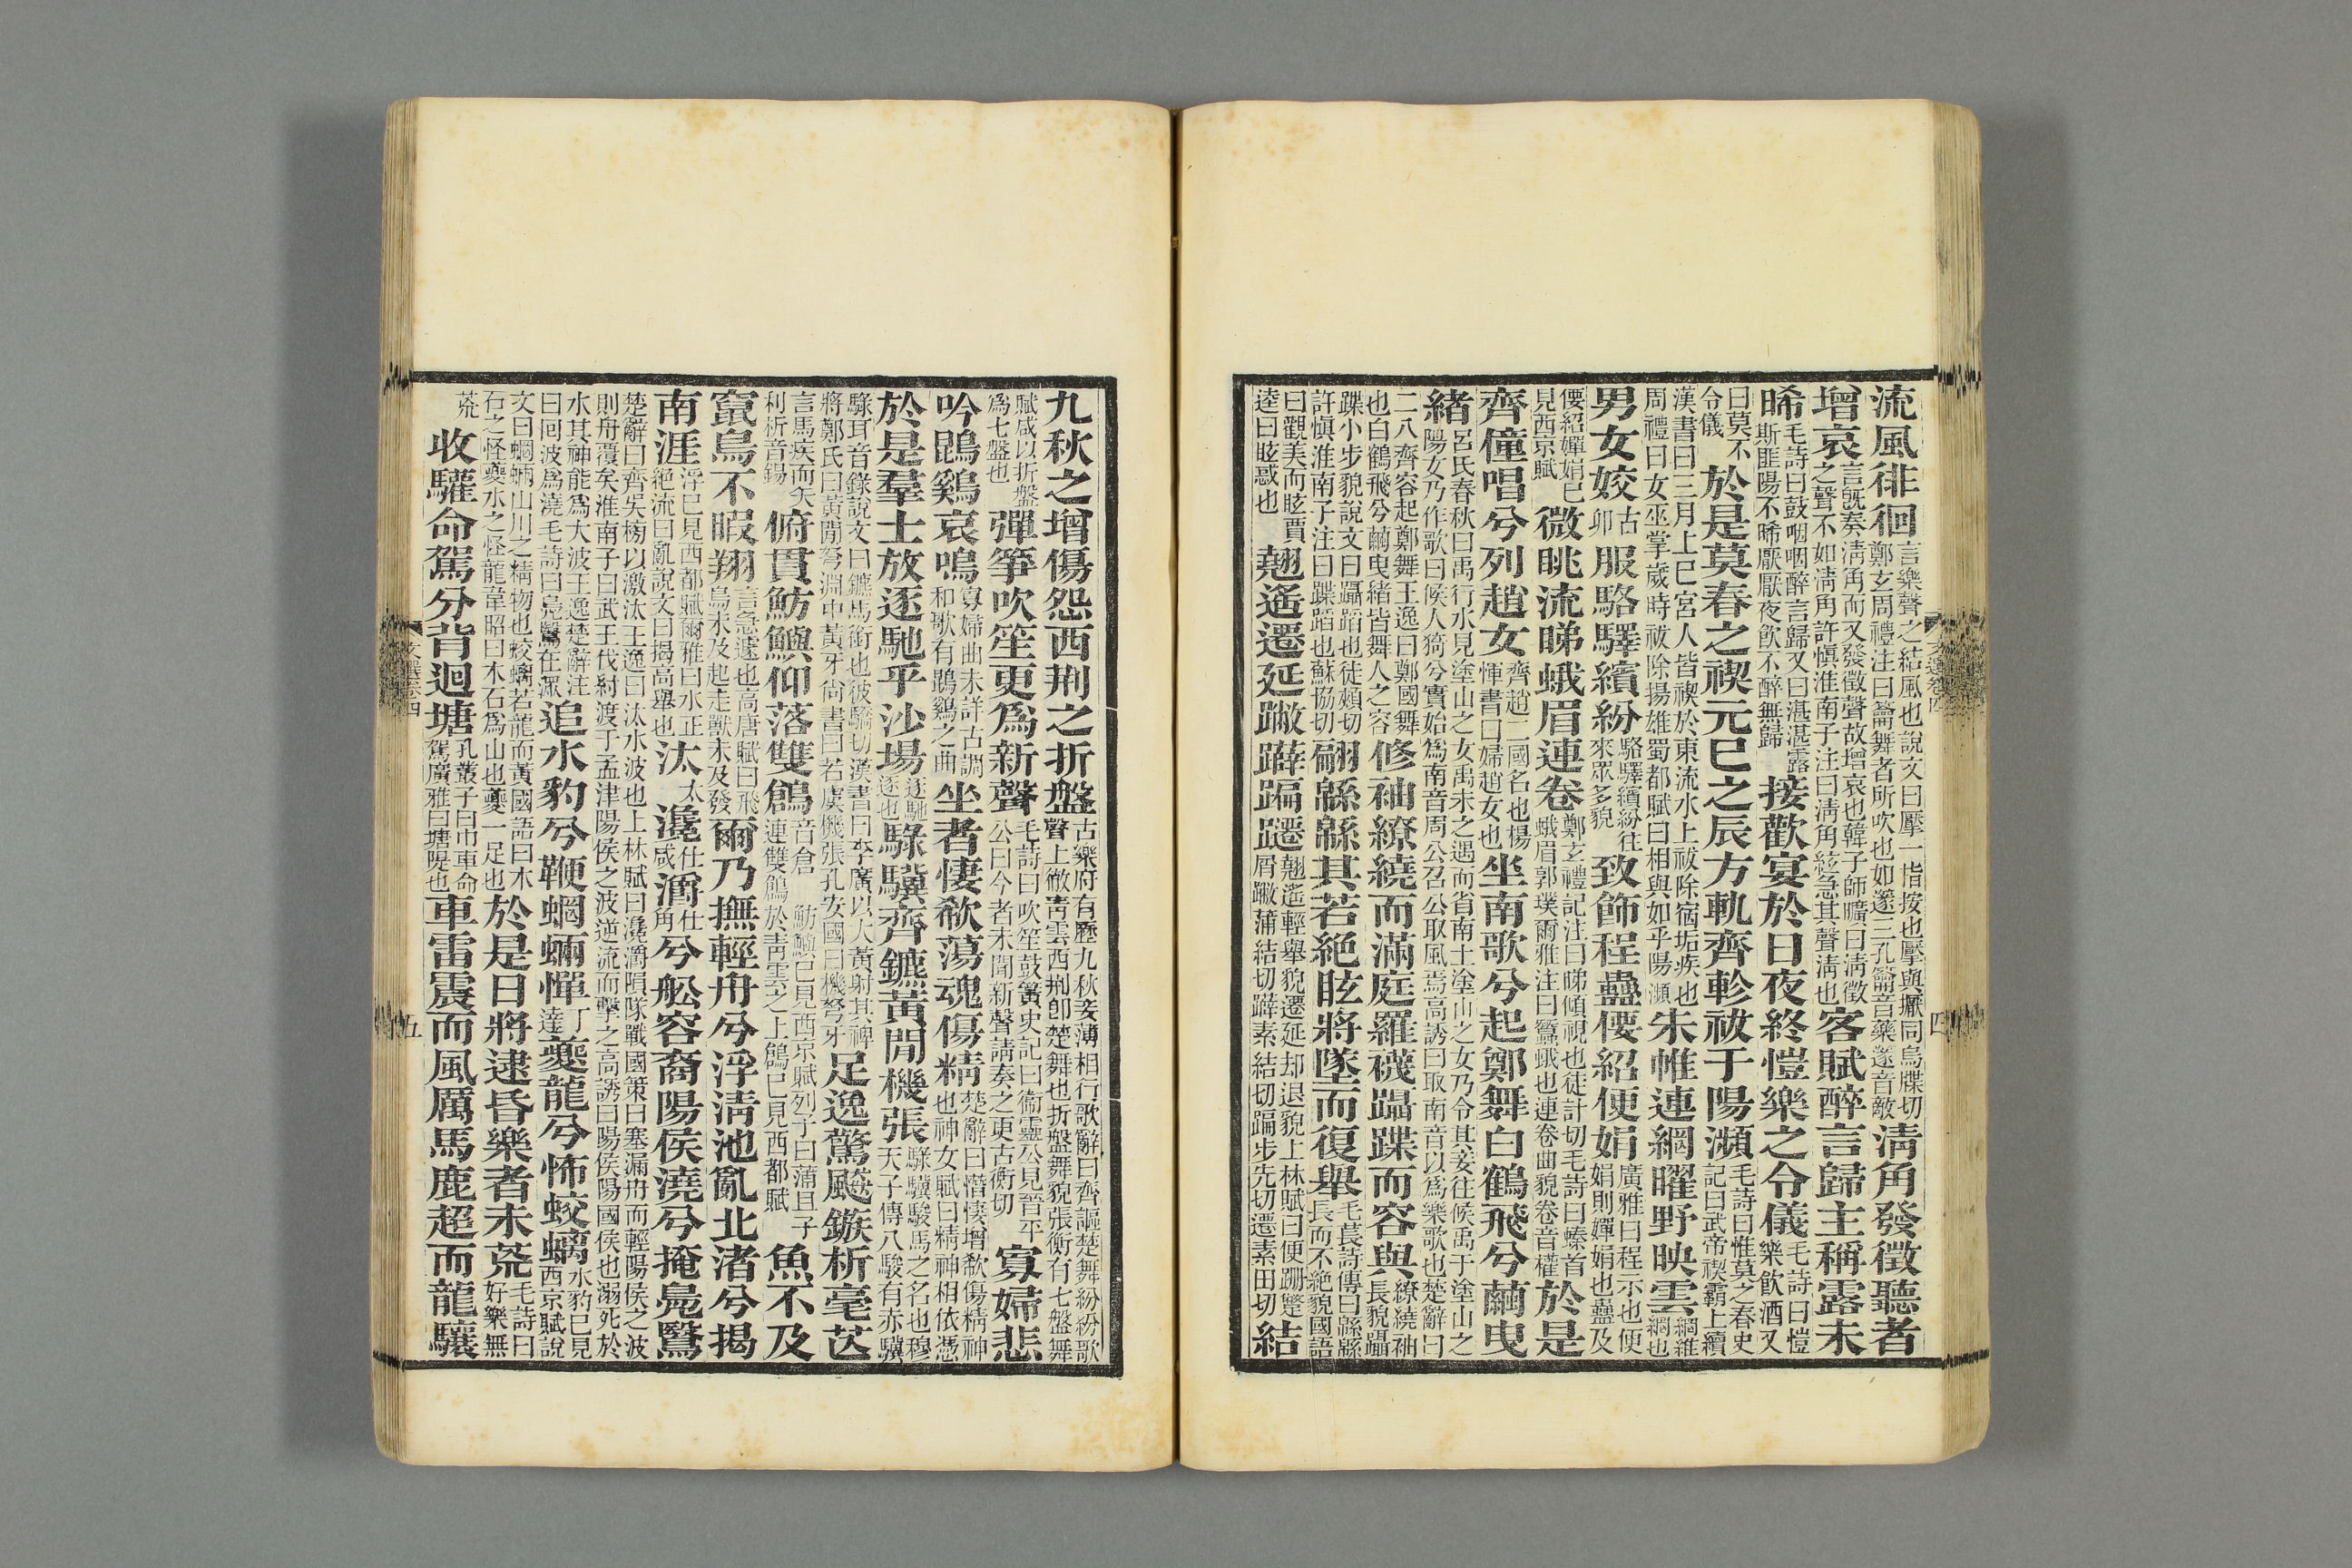 流風徘徊言樂聲之結風也說文曰擪一指按也擪與擫同烏牒切鄭玄周禮注曰籥舞者所吹也如篴三孔籥音藥篴音敵清角發徵聽者
增哀言旣奏清角而又發徵聲故增哀也韓子師曠曰清徵之聲不如清角許愼淮南子注曰清角絃急其聲清也客賦醉言歸主稱露未
晞毛詩曰鼓咽咽醉言歸又曰湛湛露斯匪陽不晞厭厭夜飲不醉無歸接歡宴於日夜終愷樂之令儀毛詩曰愷樂飲酒又
曰莫不令儀於是莫春之禊元巳之辰方軌齊軫祓于陽瀕毛詩曰惟莫之春史記曰武帝禊霸上續
漢書曰三月上巳宮人皆禊於東流水上祓除宿垢疾也周禮曰女巫掌歲時祓除揚雄蜀都賦曰相與如乎陽瀕朱帷連網曜野映雲網維綱也
男女姣古卯服駱驛繽紛駱驛繽紛往來眾多貌致飾程蠱偠紹便娟廣雅曰程示也便娟則嬋娟也蠱及
偠紹嬋娟已見西京賦微眺流睇蛾眉連卷鄭玄禮記注曰睇傾視也徒計切毛詩曰螓首蛾眉郭璞爾雅注曰蠶蛾也連卷曲貌卷音權於是
齊僮唱兮列趙女齊趙二國名也楊惲書曰婦趙女也坐南歌兮起鄭舞白鶴飛兮繭曳
緒呂氏春秋曰禹行水見塗山之女禹未之遇而省南土塗山之女乃令其妾往候禹于塗山之陽女乃作歌曰候人猗兮實始爲南音周公召公取風焉高誘曰取南音以爲樂歌也楚辭曰
二八齊容起鄭舞王逸曰鄭國舞也白鶴飛兮繭曳緒皆舞人之容修袖繚繞而滿庭羅襪躡蹀而容與繚繞袖長貌躡
蹀小步貌說文曰躡蹈也徒頰切許愼淮南子注曰蹀蹈也蘇協切翩緜緜其若絕眩將墜而復舉毛萇詩傳曰緜緜長而不絕貌國語
曰觀美而眩賈逵曰眩惑也翹遙遷延蹩躃蹁躚翹遙輕舉貌遷延却退貌上林賦曰便跚蹩屑蹩蒲結切躃素結切蹁步先切躚素田切結
文選卷四
四
九秋之增傷怨西荆之折盤古樂府有歷九秋妾薄相行歌辭曰齊謳楚舞紛紛歌聲上徹青雲西荆卽楚舞也折盤舞貌張衡有七盤舞
賦咸以折盤爲七盤也彈箏吹笙更爲新聲毛詩曰吹笙鼓簧史記曰衞靈公見晉平公曰今者未聞新聲請奏之更古衡切寡婦悲
吟鵾鷄哀鳴寡婦曲未詳古調和歌有鵾鷄之曲坐者悽欷蕩魂傷精楚辭曰憯悽增欷傷精神也神女賦曰精神相依憑
於是羣士放逐馳乎沙場逐馳逐也騄驥齊鑣黃閒機張騄驥駿馬之名也穆天子傳八駿有赤驥
騄耳音錄說文曰鑣馬銜也彼驕切漢書曰李廣以大黃射其裨將鄭氏曰黃閒弩淵中黃牙尚書曰若虞機張孔安國曰機弩牙足逸驚飈鏃析毫芒
言馬疾而矢利析音錫俯貫魴鱮仰落雙鶬音倉魴鱮已見西京賦列子曰蒲且子連雙鶬於青雲之上鶬已見西都賦魚不及
竄鳥不暇翔言急遽也高唐賦曰飛鳥未及起走獸未及發爾乃撫輕舟兮浮清池亂北渚兮揭
南涯浮已見西都賦爾雅曰水正絕流曰亂說文曰揭高舉也汰太瀺仕咸灂仕角兮舩容裔陽侯澆兮掩鳧鷖
楚辭曰齊吳榜以激汰王逸曰汰水波也上林賦曰瀺灂隕隊戰國策曰塞漏舟而輕陽侯之波則舟覆矣淮南子曰武王伐紂渡于孟津陽侯之波逆流而擊之高誘曰陽侯陽國侯也溺死於
水其神能爲大波王逸楚辭注曰回波爲澆毛詩曰鳧鷖在潀追水豹兮鞭蝄蜽憚丁達夔龍兮怖蛟螭水豹已見西京賦說
文曰蝄蜽山川之精物也蛟螭若龍而黃國語曰木石之怪夔水之怪龍韋昭曰木石爲山也夔一足也於是日將逮昏樂者未荒毛詩曰好樂無
荒收驩命駕分背迴塘孔叢子曰巾車命駕廣雅曰塘隄也車雷震而風厲馬鹿超而龍驤
文選卷四
五